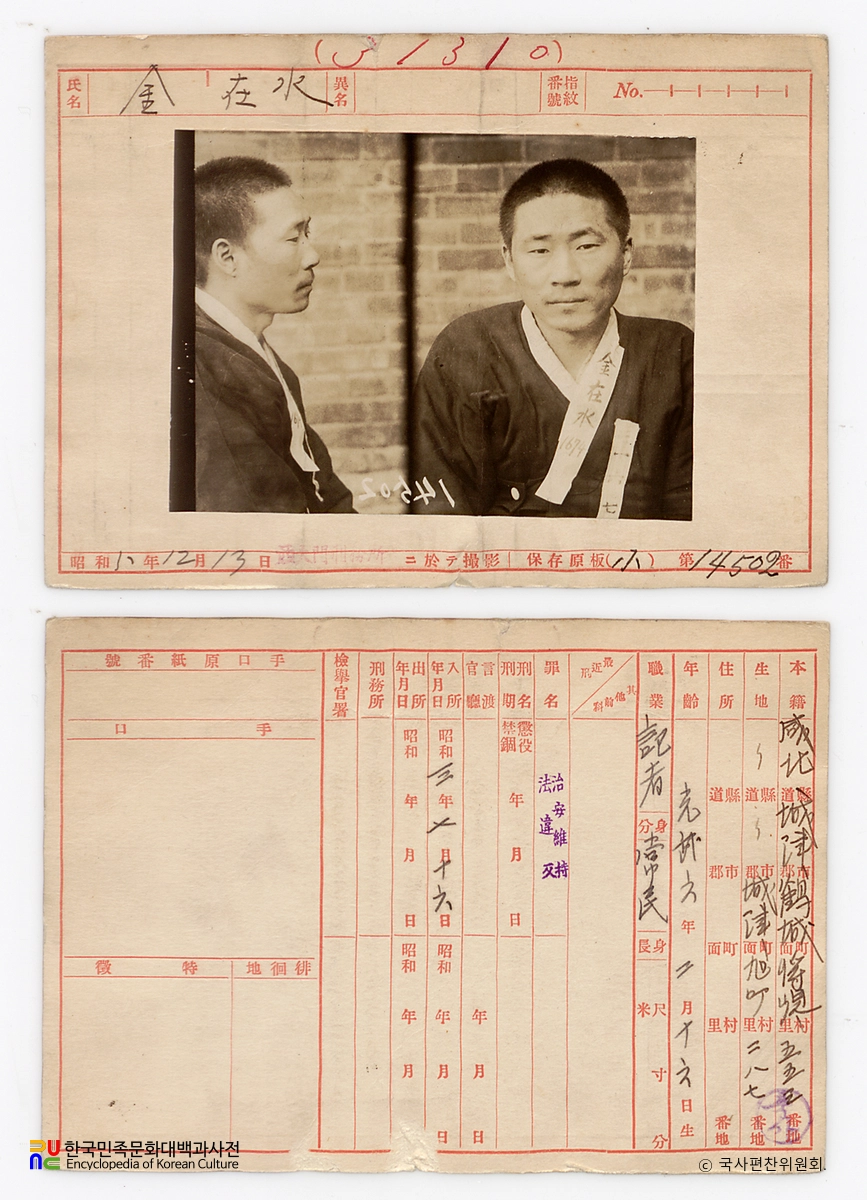 (31310)
氏名 金在水 異名 指紋番號 No.
金在水
14502
昭和 年12月13日 西大門刑務所ニ於テ撮影 保存原板(小) 第14502番
本籍 咸北道縣 城津郡市 鶴城面町 里村 五五 番地
生地 道縣 市 城津面町 旭町 里村 二八七 番地
住所 道縣 郡市 面町 里村 番地
年齡 光武六年二月十六日生
職業 記者 身分 常民 身長 米尺寸分
最近刑 其他前科
罪名 治安維持法違反
刑名刑期 懲役禁錮 年月日
言渡官廳 年月日
入所年月日 昭和三年七月十六日 昭和年月日
出所年月日 昭和年月日 昭和年月
刑務所
檢擧官署
手口原紙番號
手口
徘徊地
特徵
한국민족문화대백과사전
Encyclopedia of Korean Culture
© 국사편찬위원회